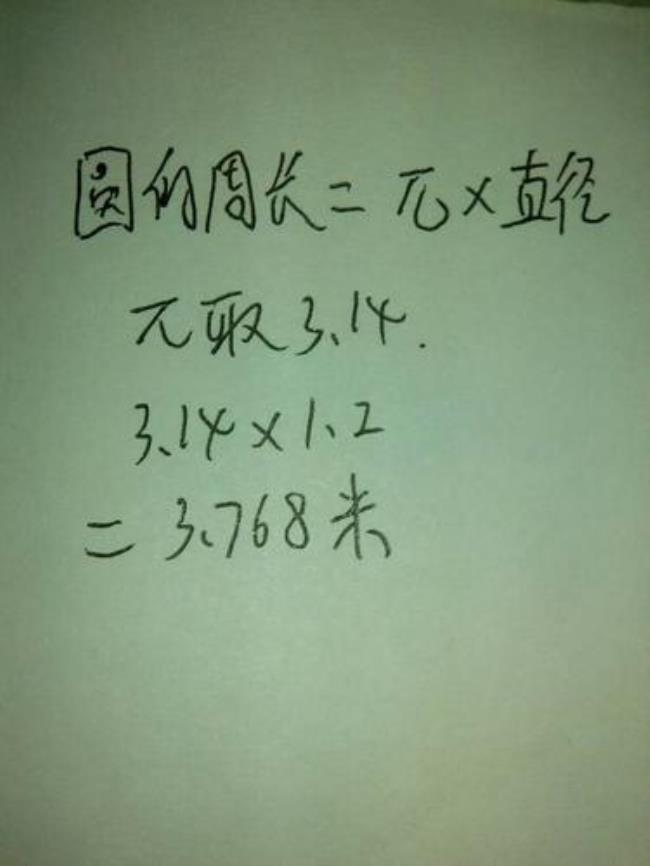 圆的周长=π×直径
π取3.14.
3.14×1.2
=3.768米